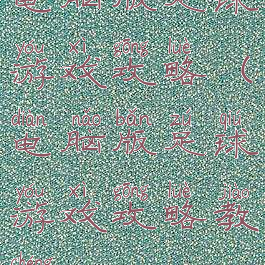 电脑版足球
yóu xì gōng lüè
游戏攻略(
diàn nǎo bǎn zú qiú
电脑版足球
yóu xì gōng lüè jiào
游戏攻略教
chéng